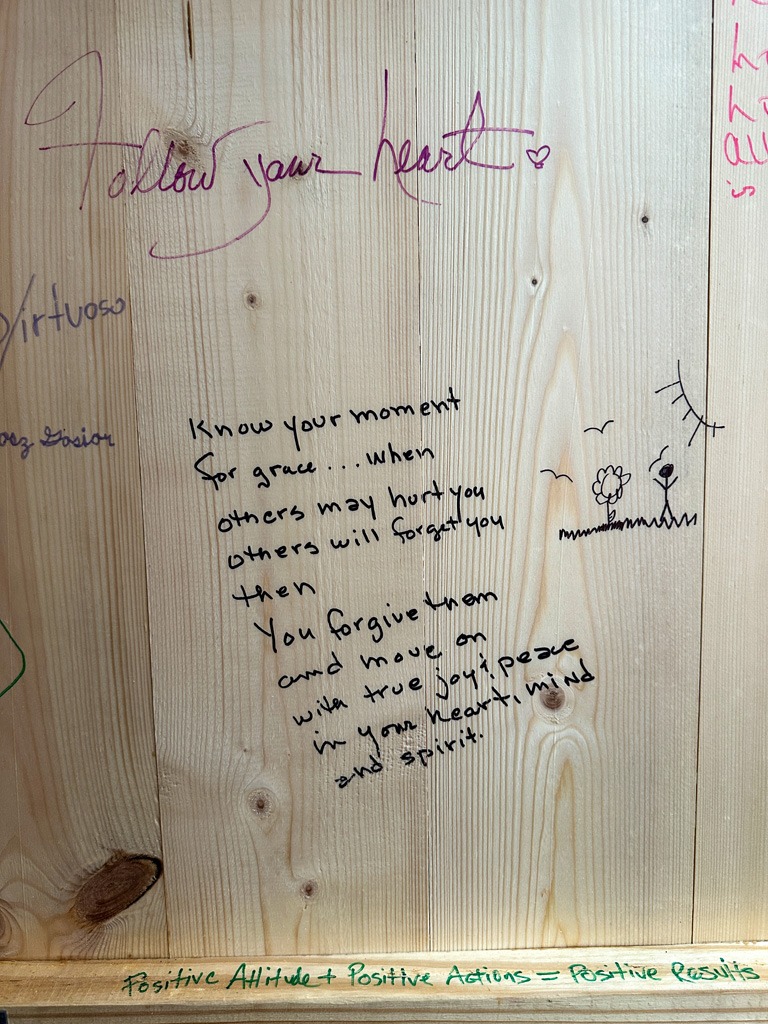 Follow your heart
Virtuoso
Know your moment
for grace... when
others may hurt you
others will forget you
then
You forgive them
and move on
with true joy & peace
in your heart, mind
and spirit.
is
Positive Attitude + Positive Actions = Positive Results